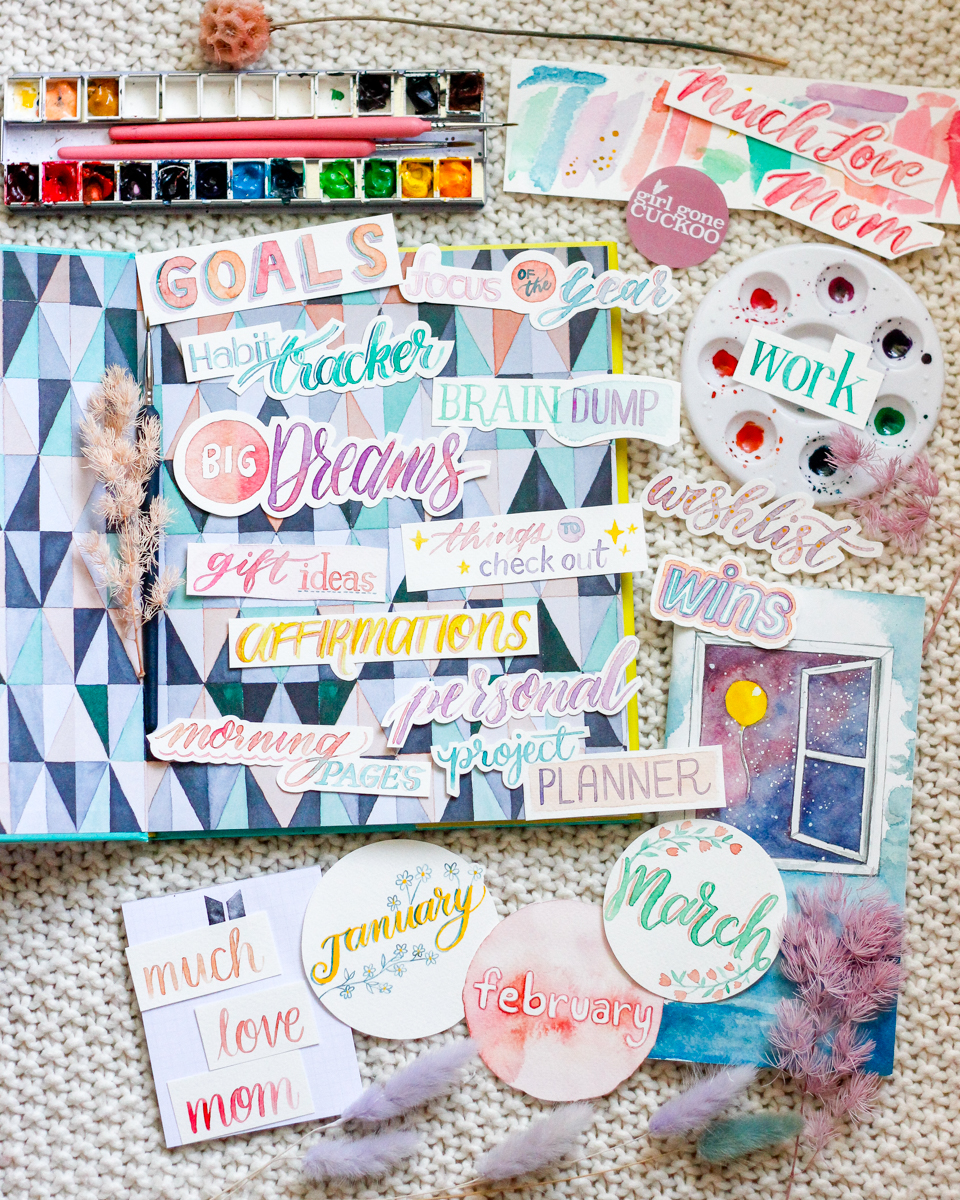 Much Love
Mom
girl gone
CUCKOO
GOALS
focus OF the Year
Habit tracker
work
BRAIN DUMP
BIG Dreams
wishlist
things TO
check out
gift ideas
wins
AFFIRMATIONS
personal
project
morning
PAGES
PLANNER
January
March
february
much
love
mom